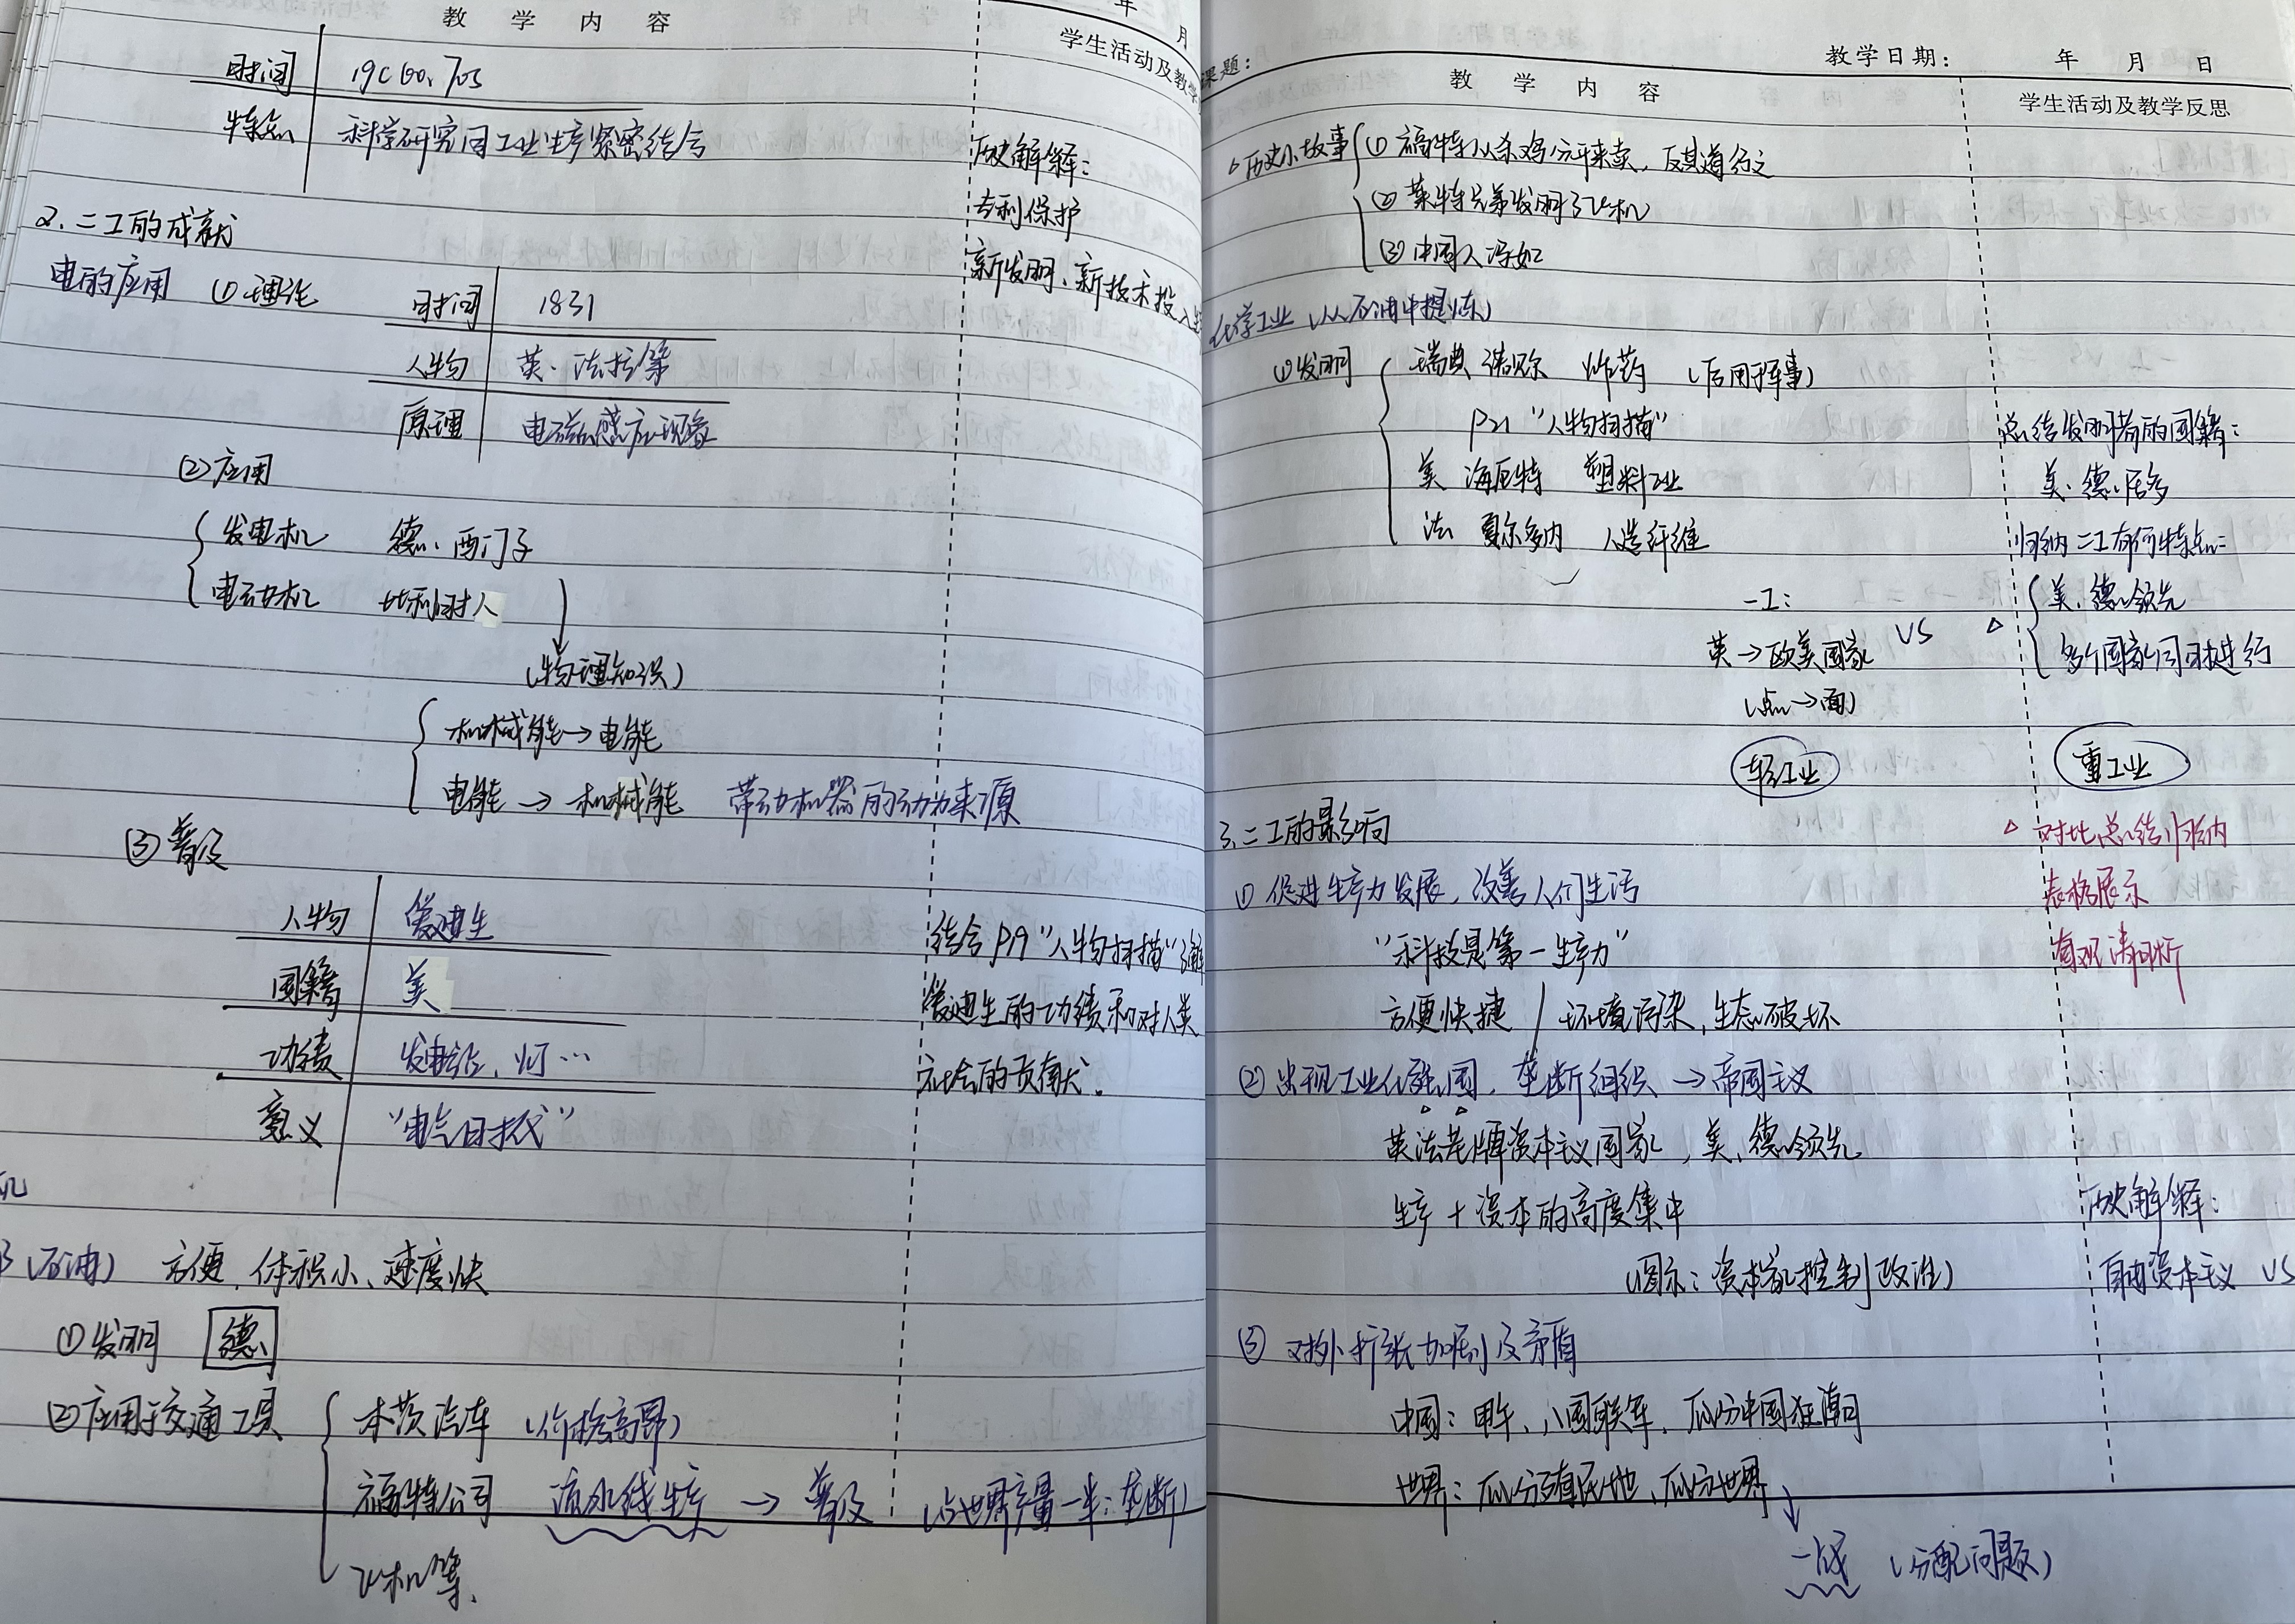 教 学 内 容
年 月
学生活动及教学
时间 19C60、70s
特点 科学研究同工业生产紧密结合
历史解释：
专利保护
新发明、新技术投入生
2.二工的成就
电的应用 ①理论 时间 1831
人物 英·法拉第
原理 电磁感应现象
②应用
发电机 德、西门子
电动机 比利时人
(物理知识)
机械能→电能
电能→机械能 带动机器的动力来源
③普及
人物 爱迪生
国籍 美
功绩 发电站、灯…
意义 “电气时代”
结合P19“人物扫描”
爱迪生的功绩和对人类
社会的贡献。
机
(石油) 方便、体积小、速度快
①发明 德
②应用于交通工具 本茨汽车 (价格高昂)
福特公司 流水线生产 → 普及 (占世界产量一半：垄断)
飞机等、
课题：
教学日期： 年 月 日
教 学 内 容
学生活动及教学反思
历史小故事 ① 福特从杀鸡分开来卖，反其道行之
② 莱特兄弟发明了飞机
③ 中国人冯如
化学工业 (从石油中提炼)
①发明 瑞典 诺贝尔 炸药 (后用于军事)
P21 “人物扫描”
美 海厄特 塑料工业
法 夏尔多内 人造纤维
总结发明者的国籍：
美、德、居多
归纳二工有何特点：
一工：
英→欧美国家 VS
(点→面)
△ 美、德领先
多个国家同时进行
轻工业
重工业
△ 对比总结归纳
表格展示
直观清晰
3.二工的影响
① 促进生产力发展，改善人们生活
“科技是第一生产力”
方便快捷 / 环境污染，生态破坏
② 出现工业化强国，垄断组织 → 帝国主义
英法老牌资本主义国家，美、德领先
生产+资本的高度集中
(图示：资本家控制政治)
历史解释：
自由资本主义 VS
③ 对外扩张加剧及矛盾
中国：甲午、八国联军、瓜分中国狂潮
世界：瓜分殖民地、瓜分世界
一战 (分配问题)